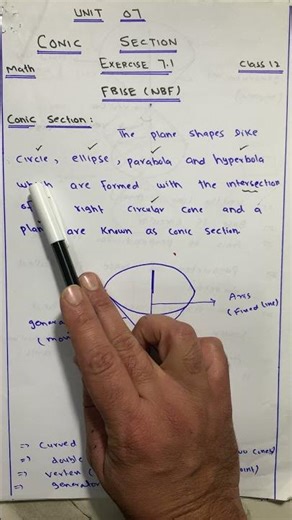 UNIT 07
CONIC SECTION
Math EXERCISE 7.1 Class 12
FBISE (NBF)
Conic Section:
The plane shapes like
circle, ellipse, parabola and hyperbola
which are formed with the intersection
of right circular cone and a
plane are known as conic section
Axis
(Fixed line)
=> Curved
=> double
=>
=>